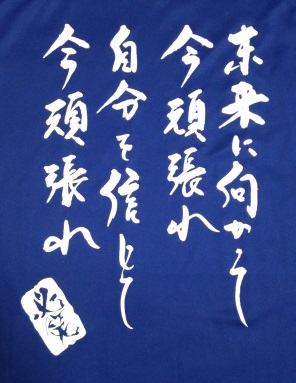 未来に向かって
今頑張れ
自分を信じて
今頑張れ